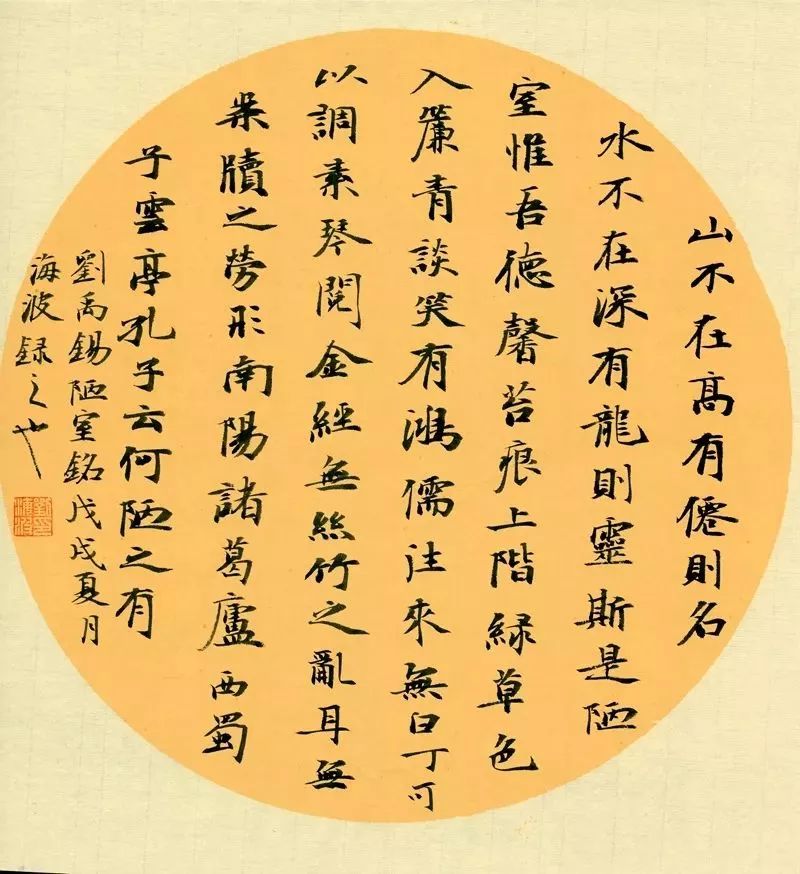 山不在髙有僊則名
水不在深有龍則靈斯是陋
室惟吾德馨苔痕上階緑草色
入簾青談笑有鴻儒往來無白丁可
以調素琴閱金經無絲竹之亂耳無
案牘之勞形南陽諸葛廬西蜀
子雲亭孔子云何陋之有
劉禹錫陋室銘戊戌夏月
海波録之也